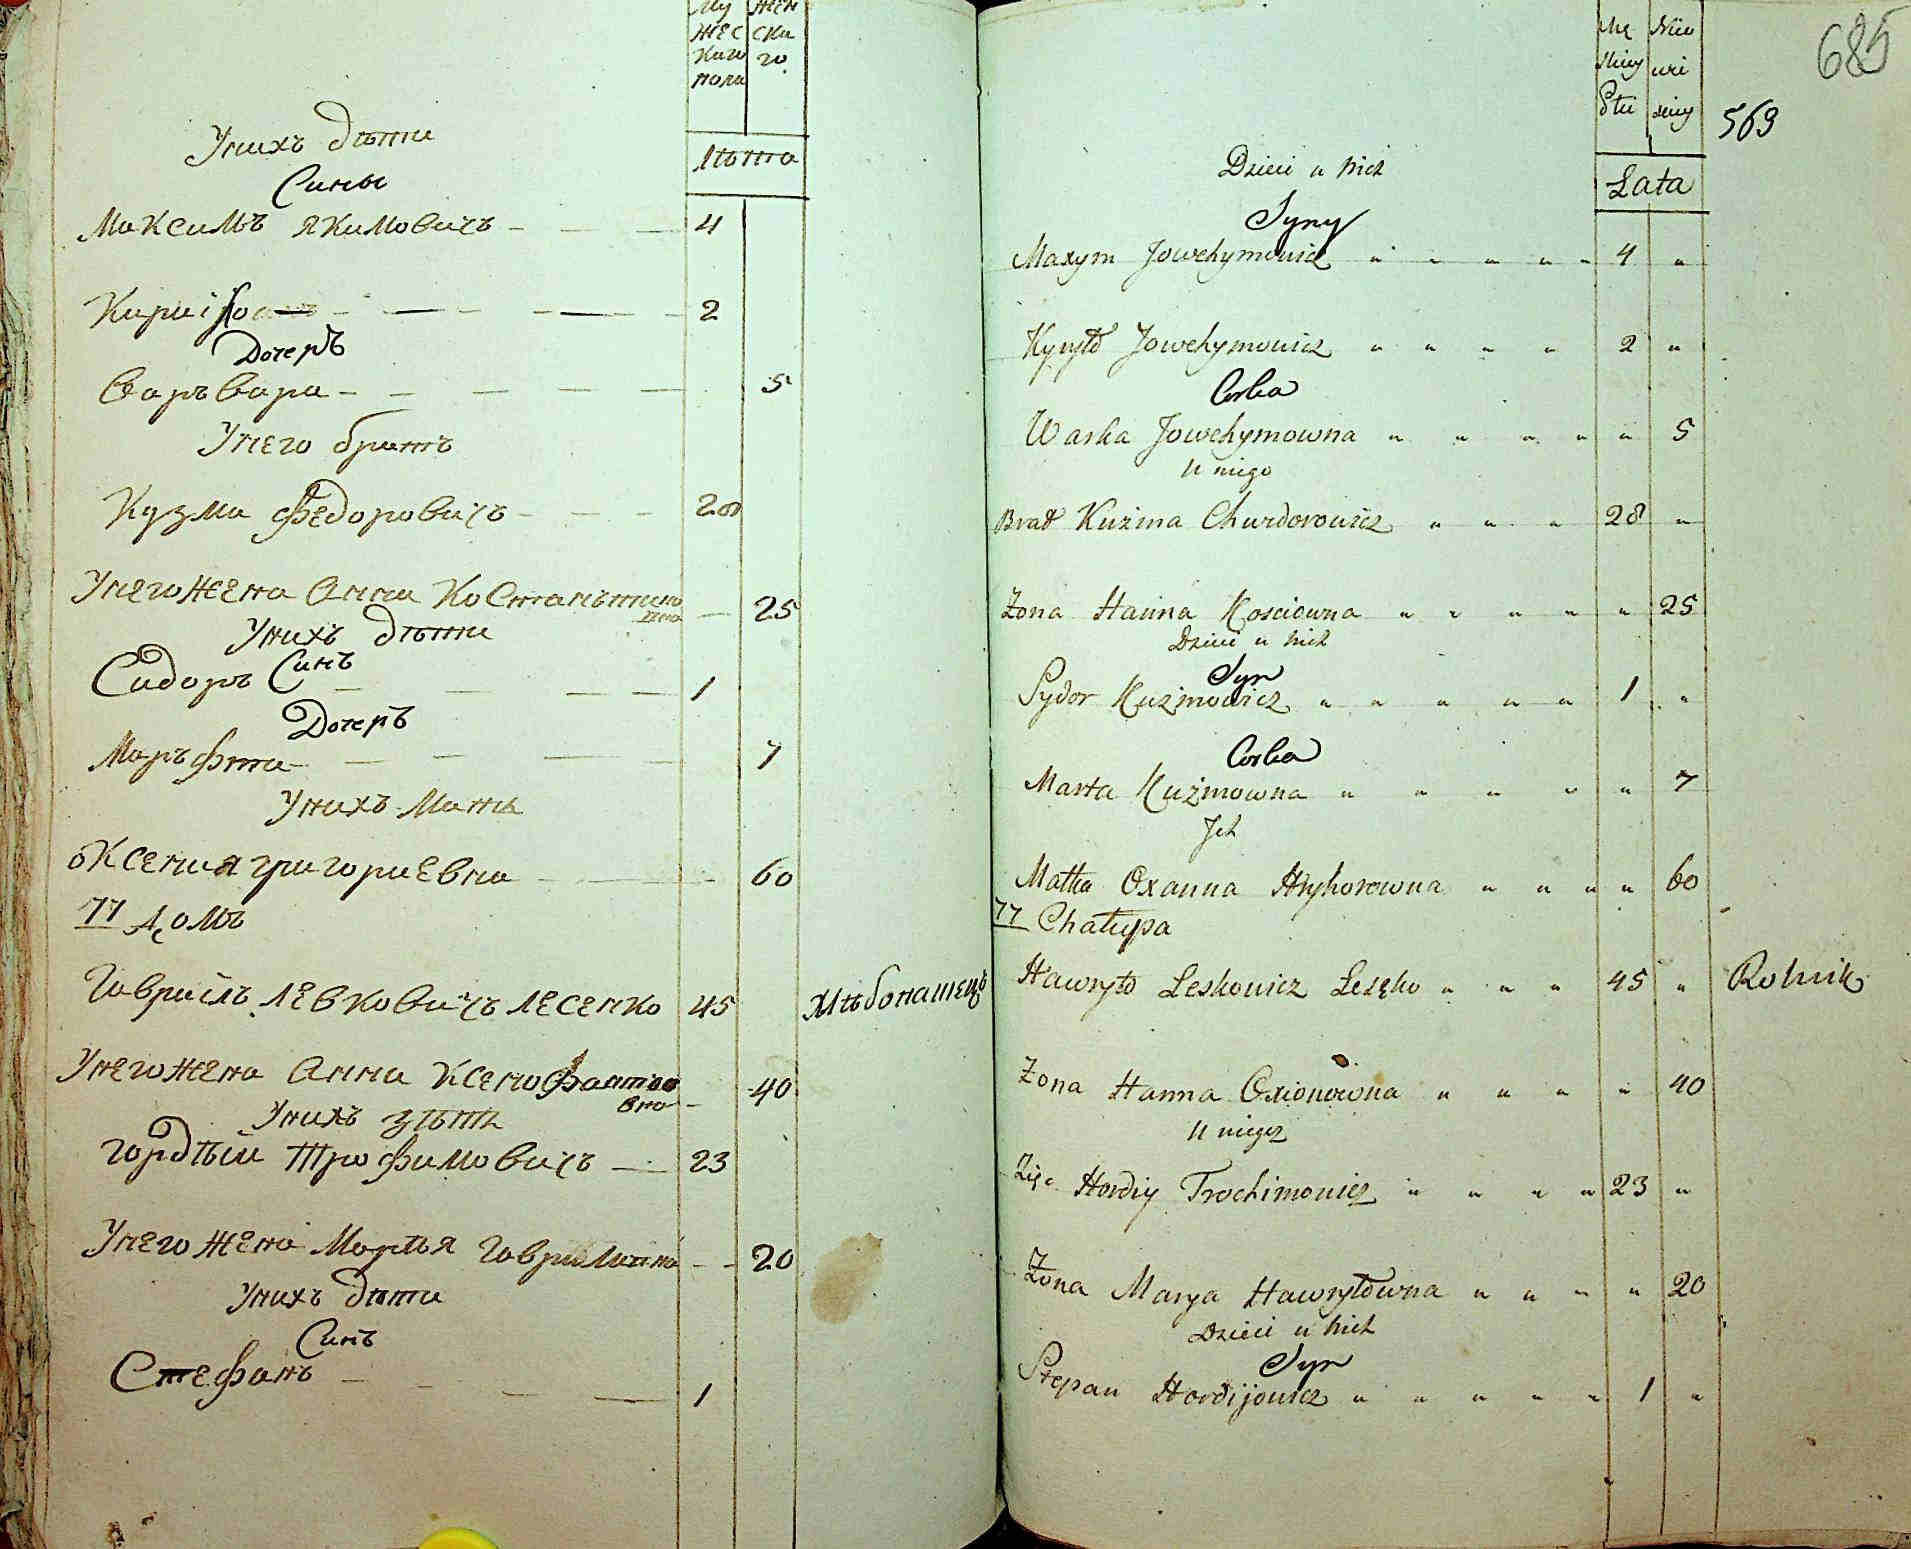 Му Жен
жес ска
каго го
пола
Унихъ дѣти
Лѣта
Сины
Максимъ Якимовичъ 4
Кирило 2
Дочеръ
Варъвара 5
Унего братъ
Кузма Федоровичъ 28
Унего жена Анна Костанътино
вна 25
Унихъ дѣти
Синъ
Сидоръ 1
Дочеръ
Маръфта 7
Унихъ Мать
оксения григориевна 60
77 Домъ
Гаврiилъ Левковичъ Лесенко 45 Хлѣбопашецъ
Унего жена Анна Ксенофонтов
вна 40
Унихъ зѣть
гордѣй Трофимовичъ 23
Унего жена Марья Гавриловна 20
Унихъ дѣти
Синъ
Стефанъ 1
685
569
Dzieci u nich
Łata
Syny
Maxym Jowchymowicz 4
Kyryło Jowchymowicz 2
Corka
Warka Jowchymowna 5
U niego
Brat Kuźma Chwedorowicz 28
Zona Hanna Kosciowna 25
Dzieci u nich
Syn
Sydor Kuźmowicz 1
Corka
Marta Kuźmowna 7
Jch
Matka Oxanna Hryhorowna 60
77 Chałupa
Hawryło Leskowicz Łesęko 45 Rolnik
Zona Hanna Oxionowna 40
U niego
Zięc Hordiy Trochimowicz 23
Zona Marya Hawryłowna 20
Dzieci u nich
Syn
Stepan Hordijowicz 1